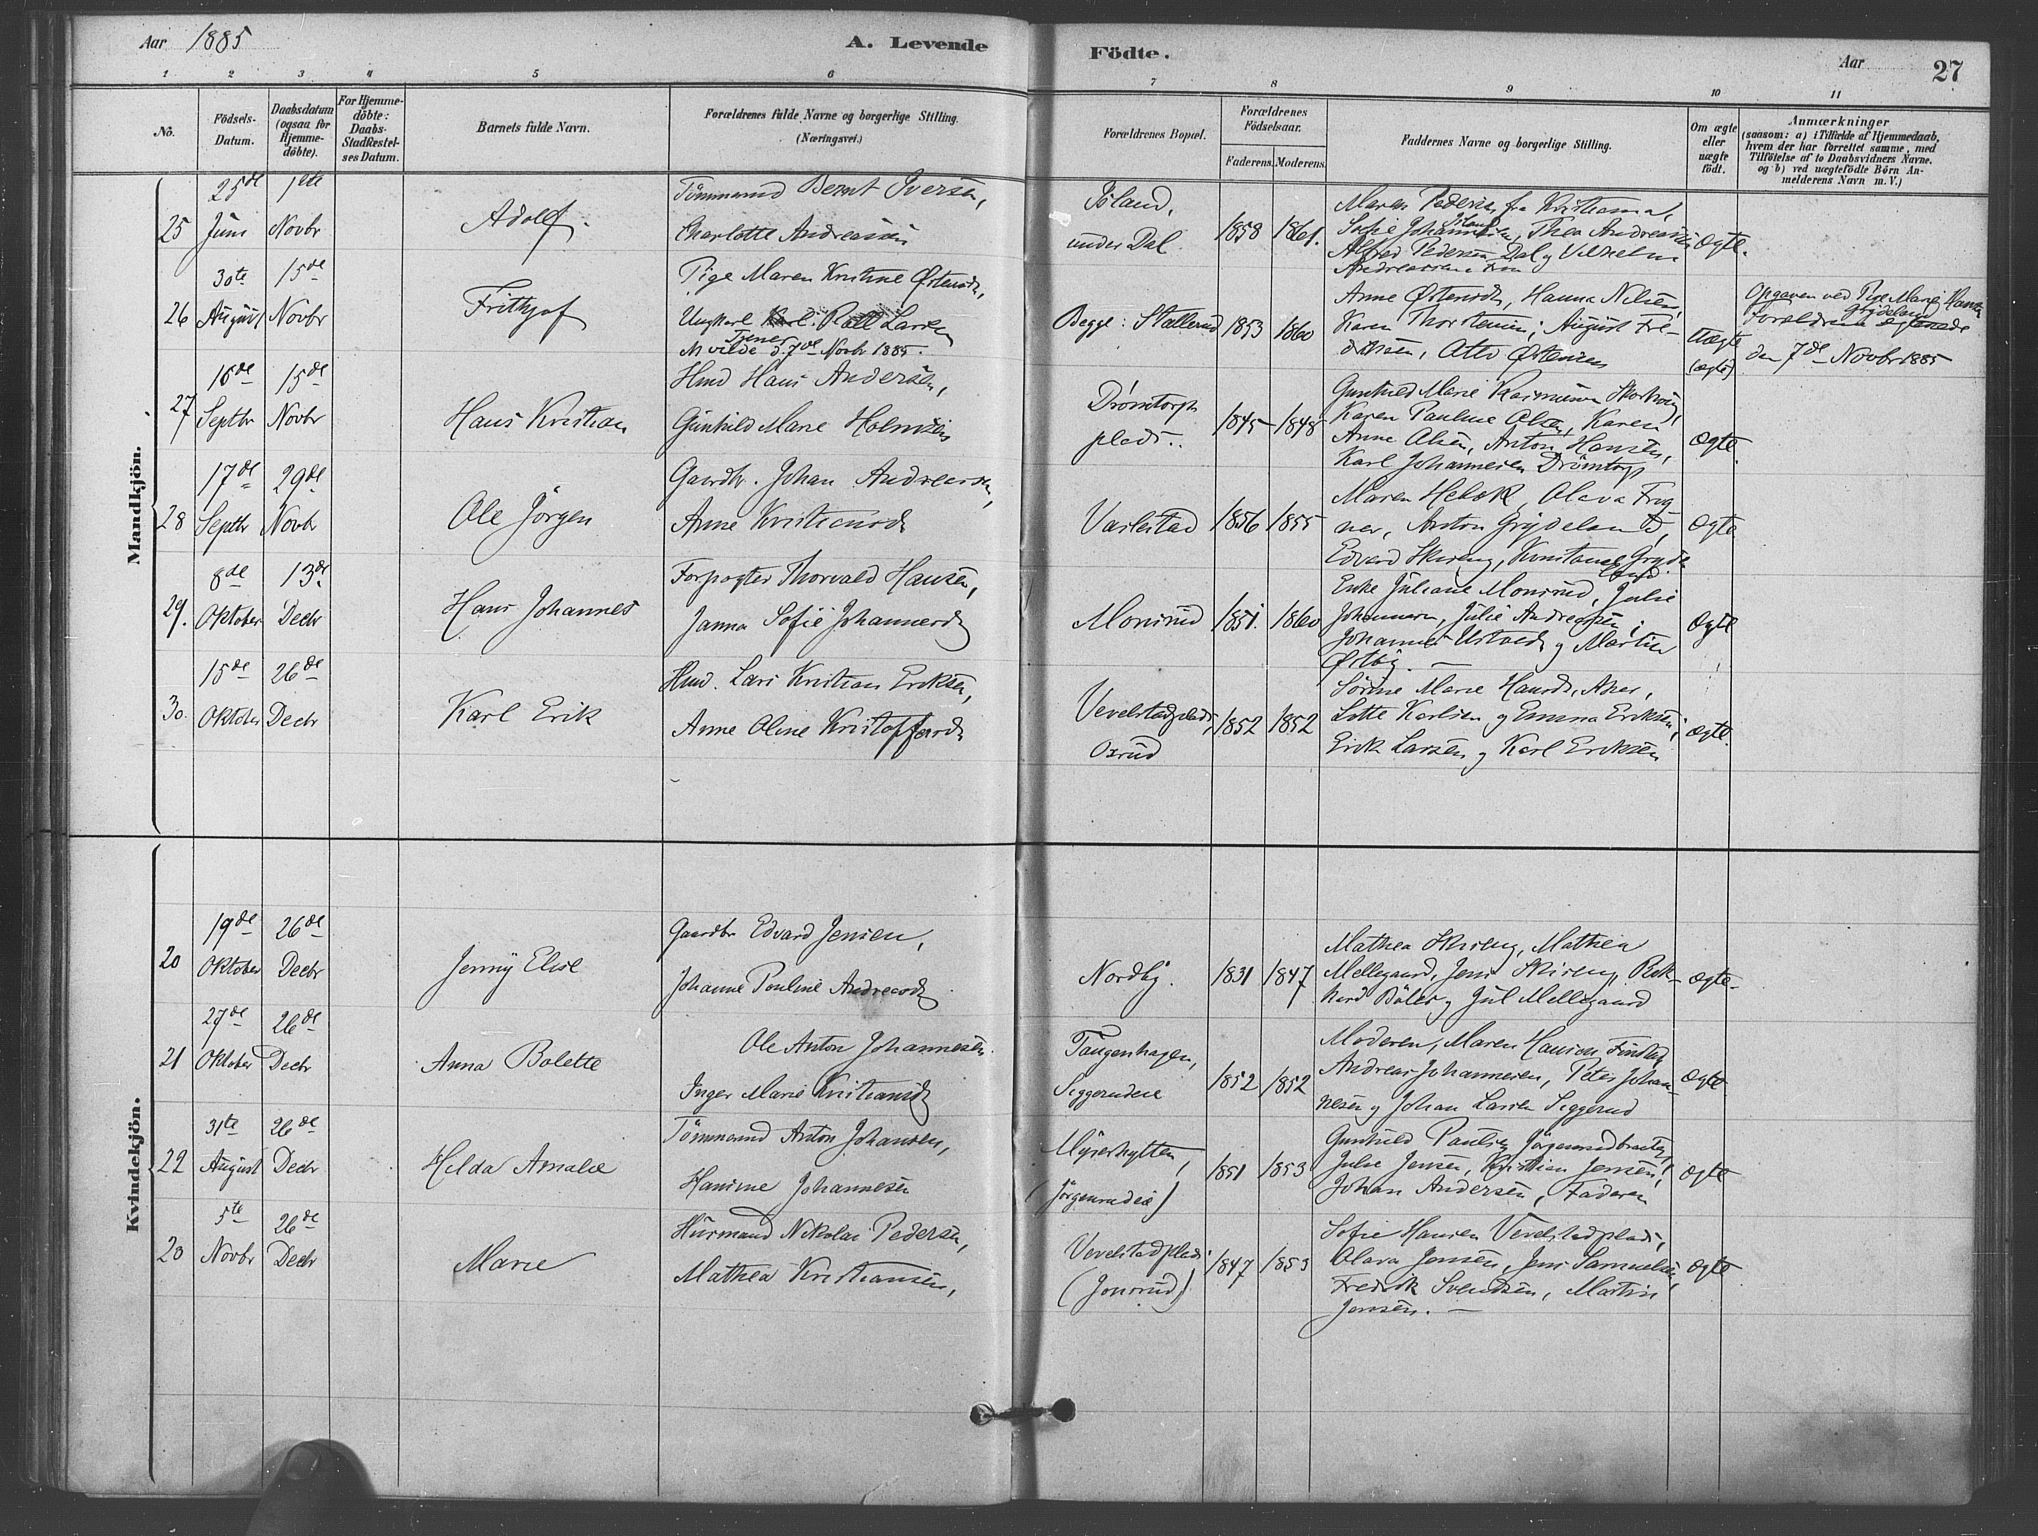 Aar 1885 A. Levende Födte. Aar 27
1 2 3 4 5 6 7 8 9 10 11
No. Födsels-Datum. Daabsdatum (ogsaa for Hjemme-döbte). For Hjemme-döbte: Daabs-Stadfæstel-ses Datum. Barnets fulde Navn. Forældrenes fulde Navne og borgerlige Stilling. (Næringsvei.) Forældrenes Bopæl. Forældrenes Födselsaar. Faderens. Moderens. Faddernes Navne og borgerlige Stilling. Om ægte eller uægte födt. Anmærkninger (saasom: a) i Tilfælde af Hjemmedaab, hvem der har forrettet samme, med Tilföielse af to Daabsvidners Navne. og b) ved uægtefödte Börn Anmelderens Navn m. V.)
Mandkjön.
25 25de Juni 1ste Novbr Adolf.
Tømmermand Bernt Iversen,
Charlotte Andreassen
Island,
under Dal.
1858 1861.
Maren Pedersen fra Kristiania,
Sofie Johannesen Island, Thea Andreassen
Alfred Pedersen Dal og Vilhelm
Andreassen
Ægte.
26 30te August 15de Novbr Frithjof
Pige Maren Kristine Østensd.,
Ungkarl Rolf Larsen
Tjener
M vilde d. 7de Novbr 1885.
Begge: Støllerud
1853 1860
Anne Østensd., Hanna Nilsen,
Karen Thorstensen; August Fre-
driksen, Otto Østensen
Uægte
(ægte)
Opgaven ved Pige Marie Hansen
Grydeland
Forældrene ægteviede
den 7de Novbr 1885
27 16de Septbr 15de Novbr Hans Kristian
Hmd Hans Andersen,
Gunhild Marie Holmsen
Drømtorp
plads.
1845 1848
Gunhild Marie Rasmussen
Karen Pauline Olsen, Karen
Anne Olsen, Anton Hansen,
Karl Johannesen Drømtorp
Ægte.
28 17de Septbr 29de Novbr Ole Jörgen
Gaardbr. Johan Andreassen,
Anne Kristiansd.
Varlestad
1856 1855
Maren Hebek, Olava Frog-
ner, Anton Grydeland,
Edvard Skreng, Konstance Gryde
land
Ægte
29. 8de Oktober 13de Decbr Hans Johannes
Forpagter Thorvald Hansen,
Janna Sofie Johannesd.
Monsrud
1851. 1860
Enke Juliane Monsrud, Julie
Johannesen, Julie Andreassen;
Johannes Ustvedt og Martin
Østby.
Ægte
30. 15de Oktober 26de Decbr Karl Erik
Hmd. Lars Kristian Eriksen,
Anne Oline Kristoffersd.
Vevelstadplads,
Oxrud
1852 1852
Sørine Marie Hansd. Aker,
Lotte Karlsen og Emma Eriksen;
Erik Larsen og Karl Eriksen
Ægte.
Kvindekjön.
20 19de Oktober 26de Decbr Jenny Elise
Gaardbr Edvard Jensen,
Johanne Pauline Andreasd.
Nordby.
1831 1847
Mathea Skreng, Mathea
Mellegaard, Jens Skreng, Rik-
hard Bøler og Jul Mellegaard
Ægte
21 27de Oktober 26de Decbr Anna Bolette
Ole Anton Johannesen
Inger Marie Kristiansd.
Tangenhagen,
Siggerudeie
1852 1852
Moderen, Maren Hansen Finstad
Andreas Johannesen, Peter Johan-
nesen og Johan Larsen Siggerud
Ægte
22 31te August 26de Decbr Hilda Amalie
Tömmermand Anton Johansen,
Hanine Johannesen
Myrerhytten,
(Jörgenrudeie)
1851 1853
Gunhild Paulsen Jörgenrudbraaten,
Julie Jensen, Kristian Jensen,
Johan Andersen, Faderen
Ægte
20 5te Novbr 26de Decbr Marie
Husmand Nikolai Pedersen,
Mathea Kristiansen,
Vevelstadplads
(Jonsrud)
1847 1853
Sofie Hansen Vevelstadplads,
Olava Jensen, Jens Samuelsen,
Fredrik Svendsen, Martin
Jensen.
Ægte